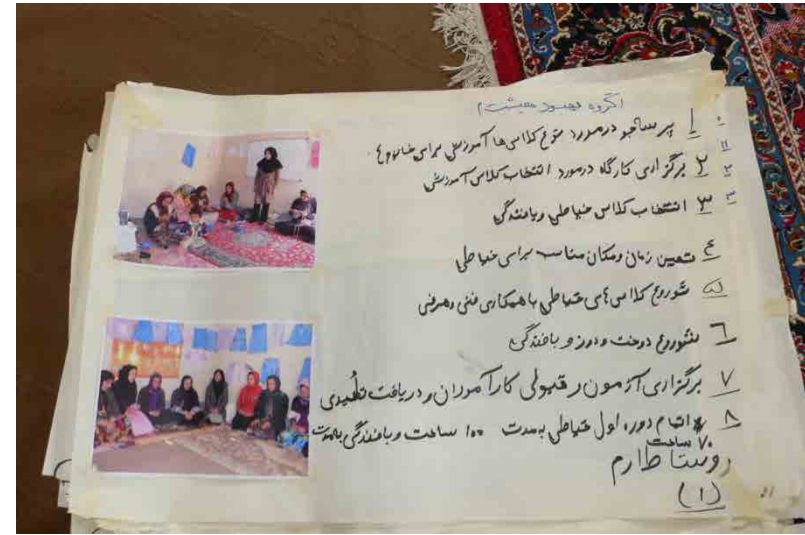 (گروه بهبود معیشت)
۱ پرساجو درمورد نوع کلاس ها آموزشی برای خانوم ها
۲ برگزاری کارگاه درمورد انتخاب کلاس آموزشی
۳ انتخاب کلاس خیاطی وبافندگی
۴ تعیین زمان ومکان مناسب برای خیاطی
۵ شوروع کلاس های خیاطی با همکاری فنی وحرفی
۶ شوروع دوخت و دوز و بافندگی
۷ برگزاری آزمون و قبولی کارآموزان و دریافت تأییدی
۸ اتمام دوره اول خیاطی به مدت ۱۰۰ ساعت و بافندگی به مدت
۷۰ ساعت
روستا طارم
(۱)